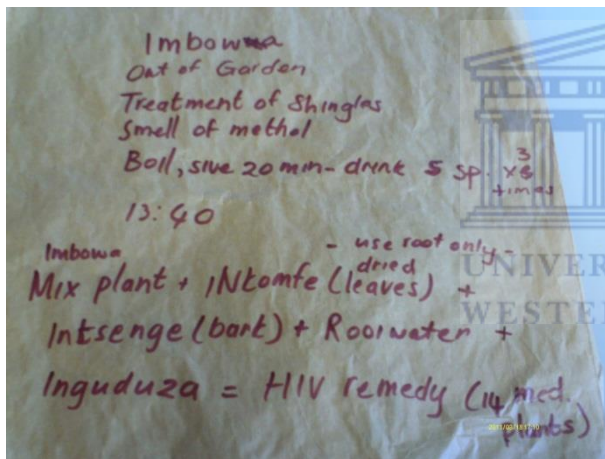 Imbowa
Out of Garden
Treatment of Shinglas
Smell of methol
Boil, sive 20 min - drink 5 sp. x 3
times
13:40
Imbowa
- use root only -
dried
Mix plant + iNtomfe (leaves) +
Intsenge (bark) + Rooiwater +
Inguduza = HIV remedy (14 med.
plants)
UNIVER
WESTE